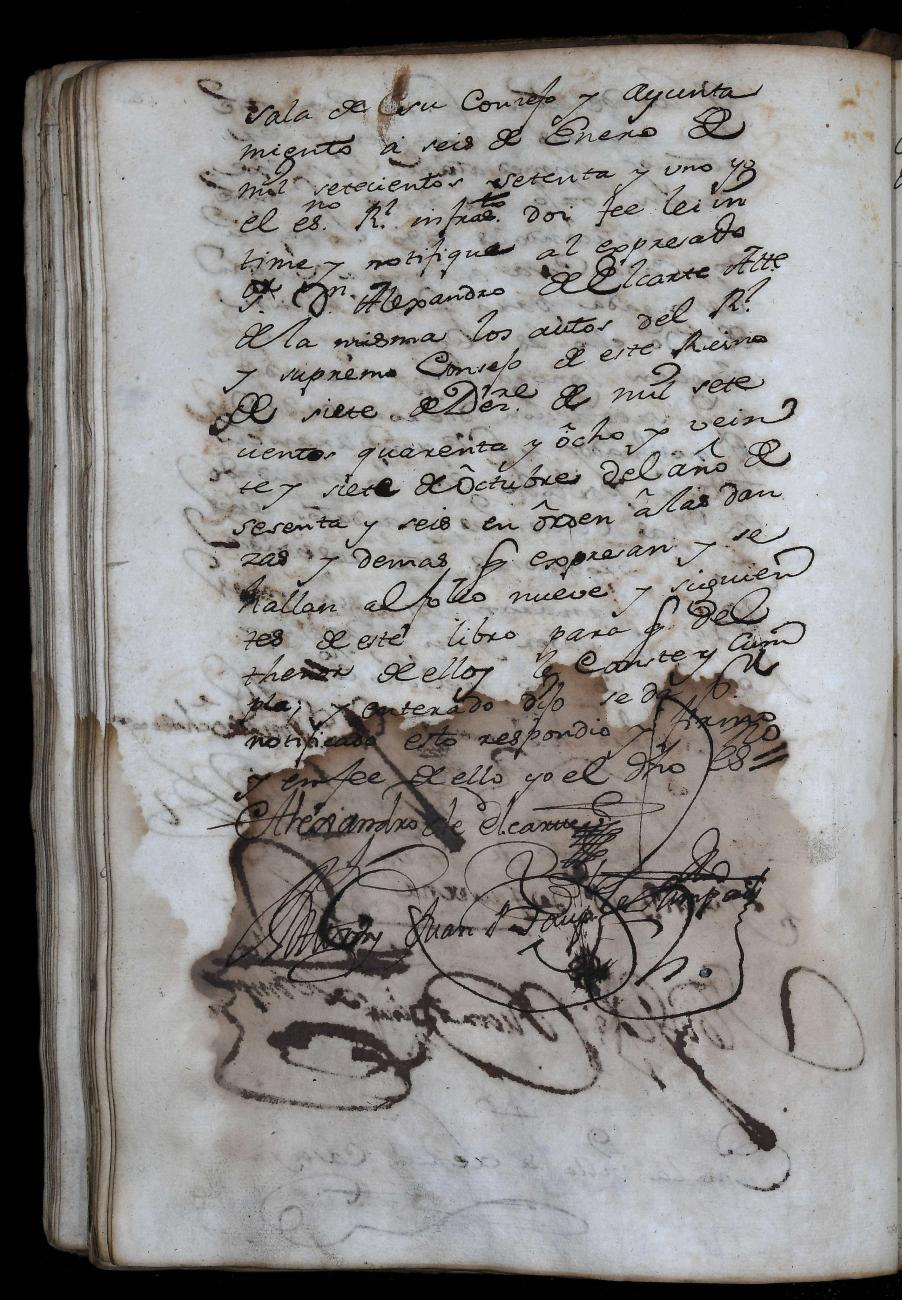 sala de su Consejo y Ayunta
miento à seis de Enero de
mil setecientos setenta y uno yo
el es.no R.l infraes.to doi fee lei in
time y notifique al expresado
s.or Dn. Alexandro de Elcarte Alc.e
de la misma los autos del R.l
y supremo Consejo de este Reino
de siete de Dez.re de mil sete
cientos quarenta y ôcho y vein
te y siete de Octubre del año de
sesenta y seis en ôrden â las dan
zas y demas q expresan y se
hallan al folio nueve y siguien
tes de este libro para q del
thenor de ellos le Conste y Cum
pla, y enterado dijo se da p.r
notificado esto respondio y firmo
y en fee de ello yo el dho es.no =
Alexandro de Elcarte
Juan